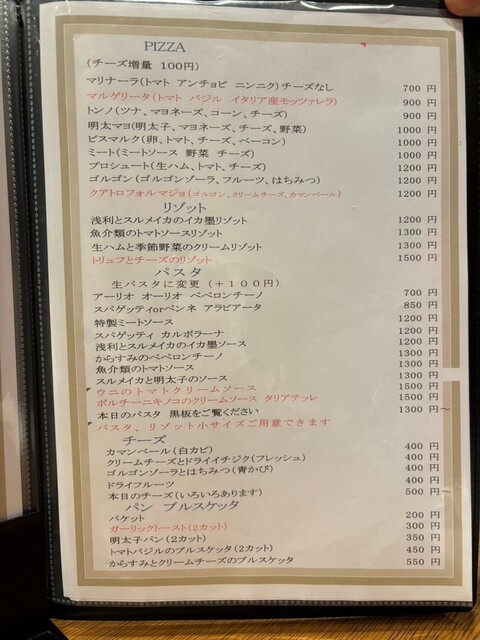 PIZZA
(チーズ増量 100円)
マリナーラ(トマト アンチョビ ニンニク)チーズなし 700 円
マルゲリータ(トマト バジル イタリア産モッツァレラ) 900 円
トンノ(ツナ、マヨネーズ、コーン、チーズ) 900 円
明太マヨ(明太子、マヨネーズ、チーズ、野菜) 1000 円
ビスマルク(卵、トマト、チーズ、ベーコン) 1000 円
ミート(ミートソース 野菜 チーズ) 1000 円
プロシュート(生ハム、トマト、チーズ) 1200 円
ゴルゴン(ゴルゴンゾーラ、フルーツ、はちみつ) 1200 円
クアトロフォルマジョ(ゴルゴン、クリームチーズ、カマンベール) 1200 円
リゾット
浅利とスルメイカのイカ墨リゾット 1200 円
魚介類のトマトソースリゾット 1300 円
生ハムと季節野菜のクリームリゾット 1300 円
トリュフとチーズのリゾット 1500 円
パスタ
生パスタに変更 (+100円)
アーリオ オーリオ ペペロンチーノ 700 円
スパゲッティorペンネ アラビアータ 850 円
特製ミートソース 1200 円
スパゲッティ カルボラーナ 1200 円
浅利とスルメイカのイカ墨ソース 1200 円
からすみのペペロンチーノ 1300 円
魚介類のトマトソース 1300 円
スルメイカと明太子のソース 1300 円
ウニのトマトクリームソース 1500 円
ポルチーニキノコのクリームソース タリアテッレ 1500 円
本日のパスタ 黒板をご覧ください 1300 円~
パスタ、リゾット小サイズご用意できます
チーズ
カマンベール(白カビ) 400 円
クリームチーズとドライイチジク(フレッシュ) 400 円
ゴルゴンゾーラとはちみつ(青かび) 400 円
ドライフルーツ 400 円
本日のチーズ(いろいろあります) 500 円~
パン ブルスケッタ
バケット 200 円
ガーリックトースト(2カット) 300 円
明太子パン(2カット) 350 円
トマトバジルのブルスケッタ(2カット) 450 円
からすみとクリームチーズのブルスケッタ 550 円